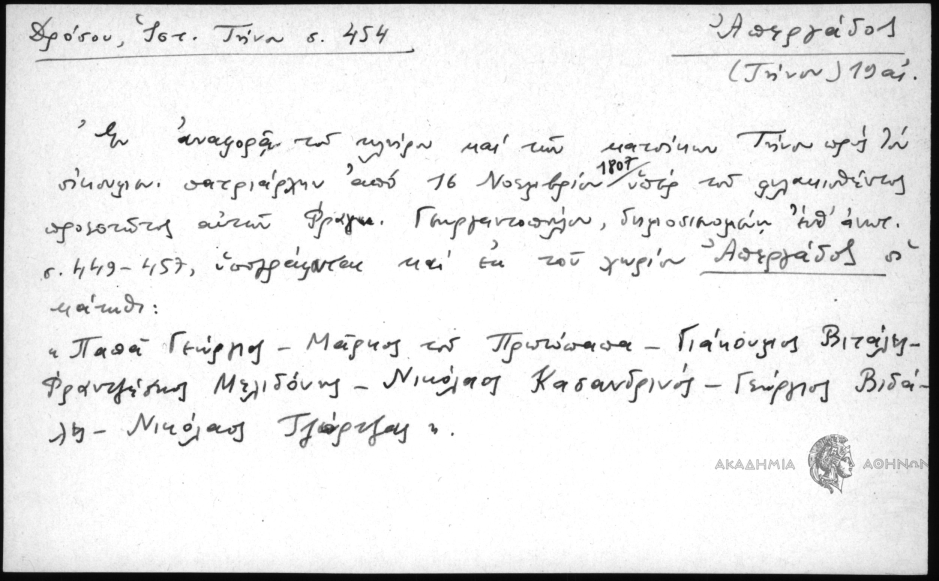 Δρόσου, Ἱστ. Τήνου σ. 454
Ἀπεργάδος
(Τήνου) 19 αἰ.
Ἐν ἀναφορᾷ τοῦ κλήρου καὶ τῶν κατοίκων Τήνου πρὸς τὸν
οἰκουμεν. πατριάρχην ἀπό 16 Νοεμβρίου 1807 ὑπὲρ τοῦ φυλακισθέντος
προεστῶτος αὐτῶν Φραγκ. Γεωργαντοπούλου, δημοσιευομένῃ ἐνθ' ἀνωτ.
σ. 449-457, ὑπογράφονται καὶ ἐκ τοῦ χωρίου Ἀπεργάδος οἱ
κάτωθι:
« Παπᾶ Γεώργιος – Μάρκος τοῦ Πρωτόπαπα – Γιάκουμος Βιτάλης –
Φραντζέσκος Μελιδόνης – Νικόλαος Κασανδρινός – Γεώργιος Βιδά-
λης – Νικόλαος Τζώρτζας ».
ΑΚΑΔΗΜΙΑ ΑΘΗΝΩΝ